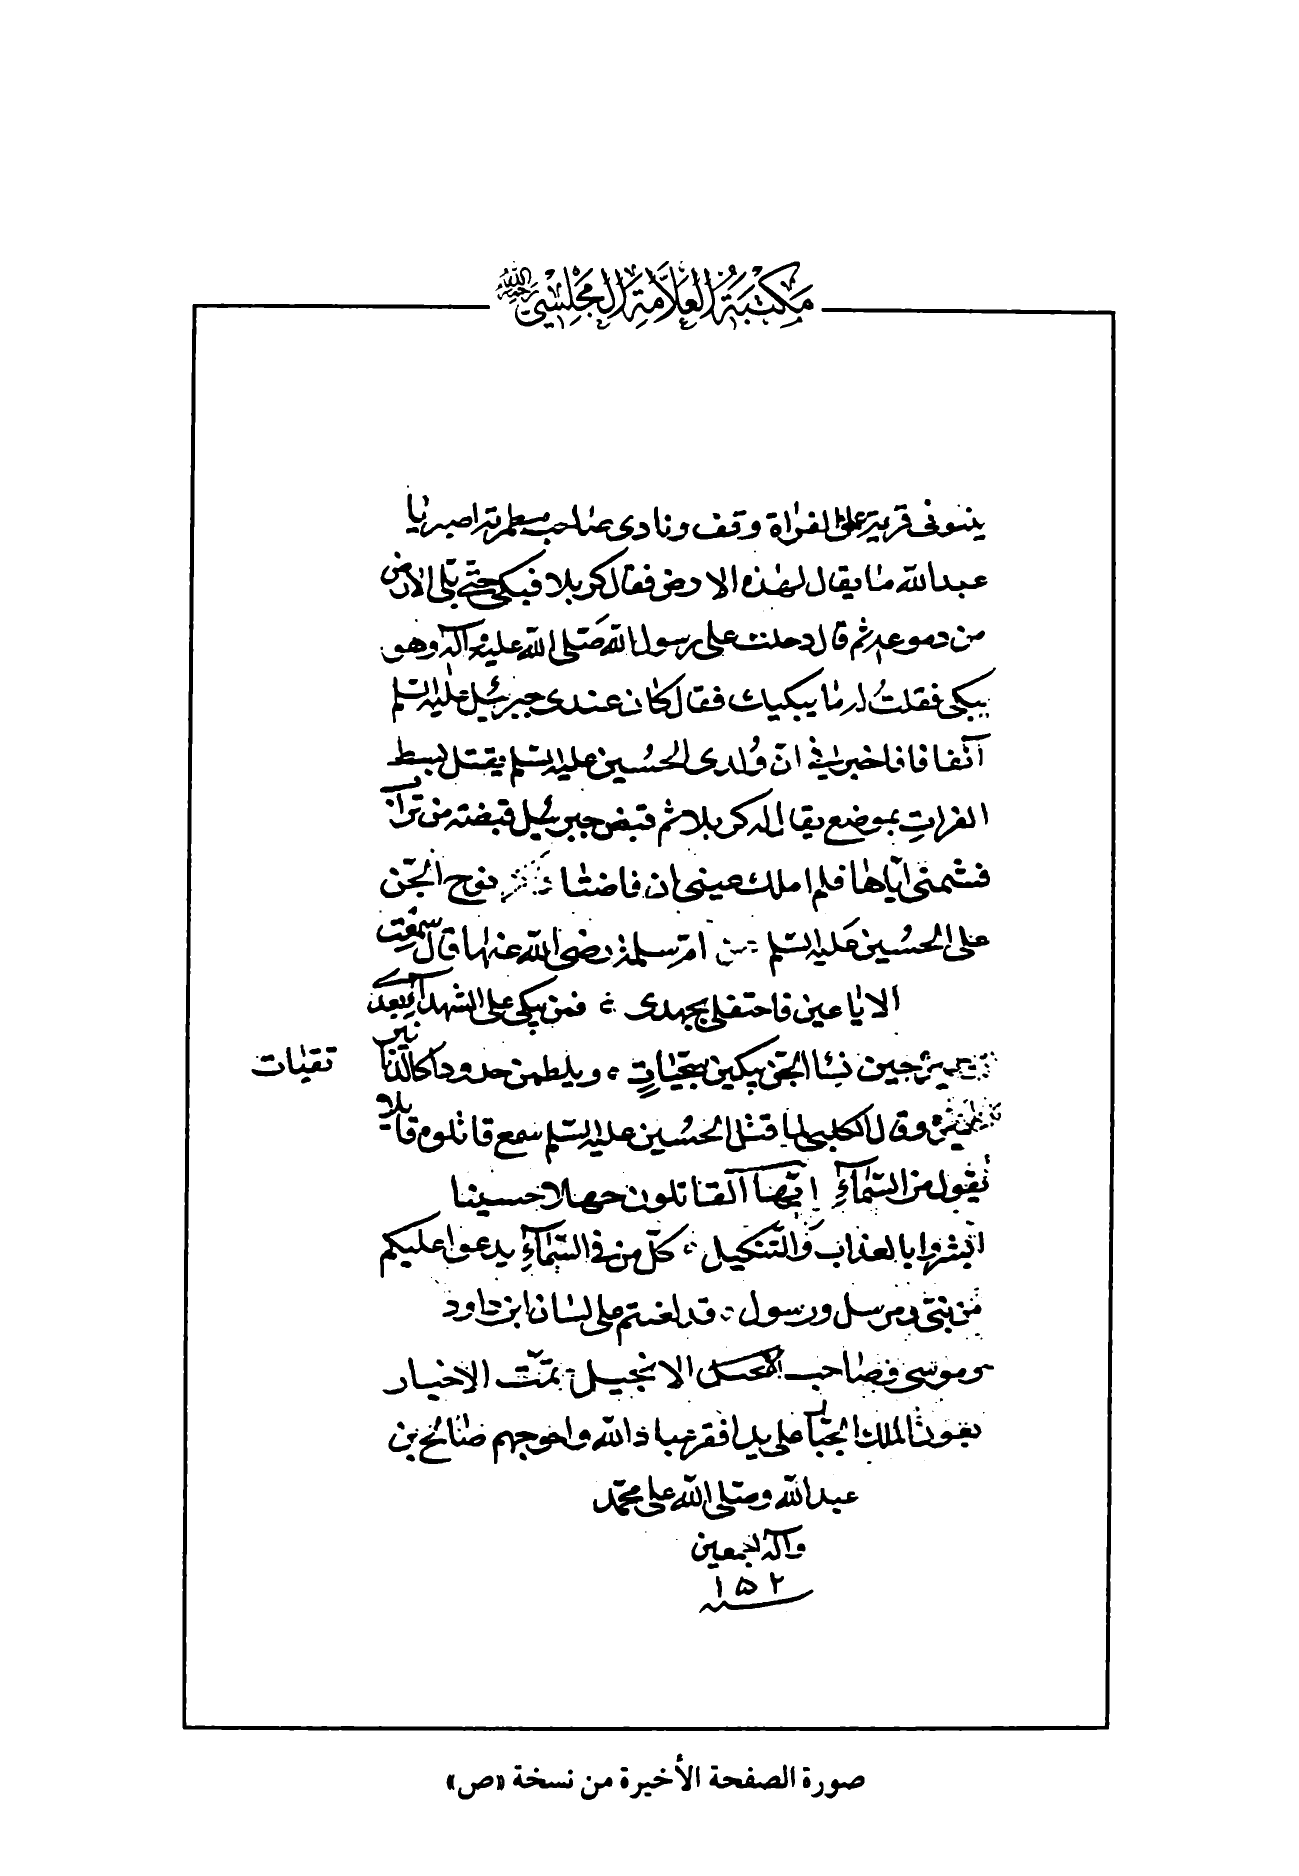 مكتبة العلامة المجلسي رحمه الله
ينوى قرية على الفراة وقف ونادى صاحب مطهرته اصبر يا
عبد الله ما يقال لهذه الارض فقال كربلا فبكى حتى بلى الارض
من دموعه ثم قال دخلت على رسول الله صلى الله عليه وآله وهو
يبكى فقلت له ما يبكيك فقال كان عندى جبرئيل عليه السلم
آنفا فاخبرني ان ولدى الحسين عليه السلم يقتل بسط
الفرات بموضع يقال له كربلا ثم قبض جبرئيل قبضة من تراب
فشمنى اياها فلم املك عينى ان فاضتا نوح الجن
على الحسين عليه السلم عن ام سلمة رضى الله عنها قال سمعت
الا يا عين فاحتفلى بجهدى فمن يبكى على الشهداء بعدى
نساء الجن يبكين شجيات ويلطمن خدودا كالدنانير
نقيات
وقال الكلبى لما قتل الحسين عليه السلم سمع قاتلوه قايلا
يقول من السماء ايها القاتلون جهلا حسينا
ابشروا بالعذاب والتنكيل كل من في السماء يدعوا عليكم
من نبى ومرسل ورسول قد لعنتم على لسان ابن داود
وموسى وصاحب الانجيل تمت الاخبار
بعون الملك الجبار على يد افقر عباد الله واحوجهم صالح بن
عبد الله وصلى الله على محمد
وآله اجمعين
سنة ١٥٢
صورة الصفحة الأخيرة من نسخة «ص»